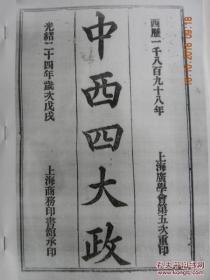 西歷一千八百九十八年
上海廣學會第五次重印
中西四大政
光緒二十四年歲次戊戌
上海商務印書館承印